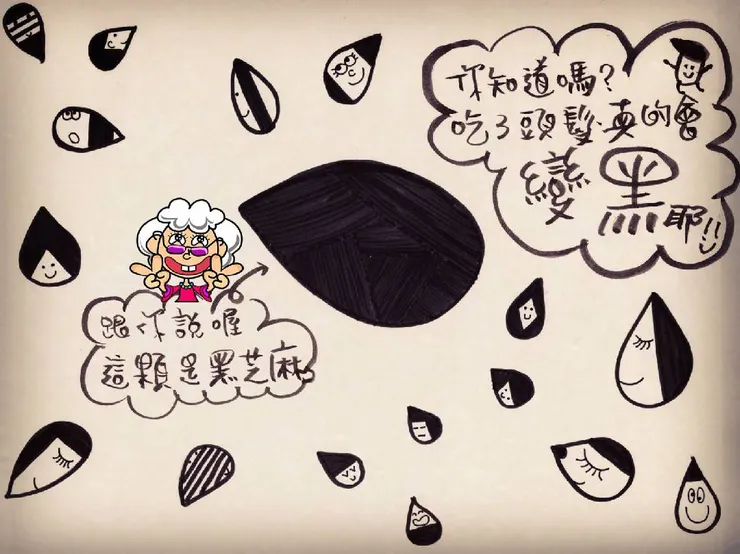 你知道嗎?
吃了頭髮真的會
變黑耶!!
跟你說喔
這顆是黑芝麻